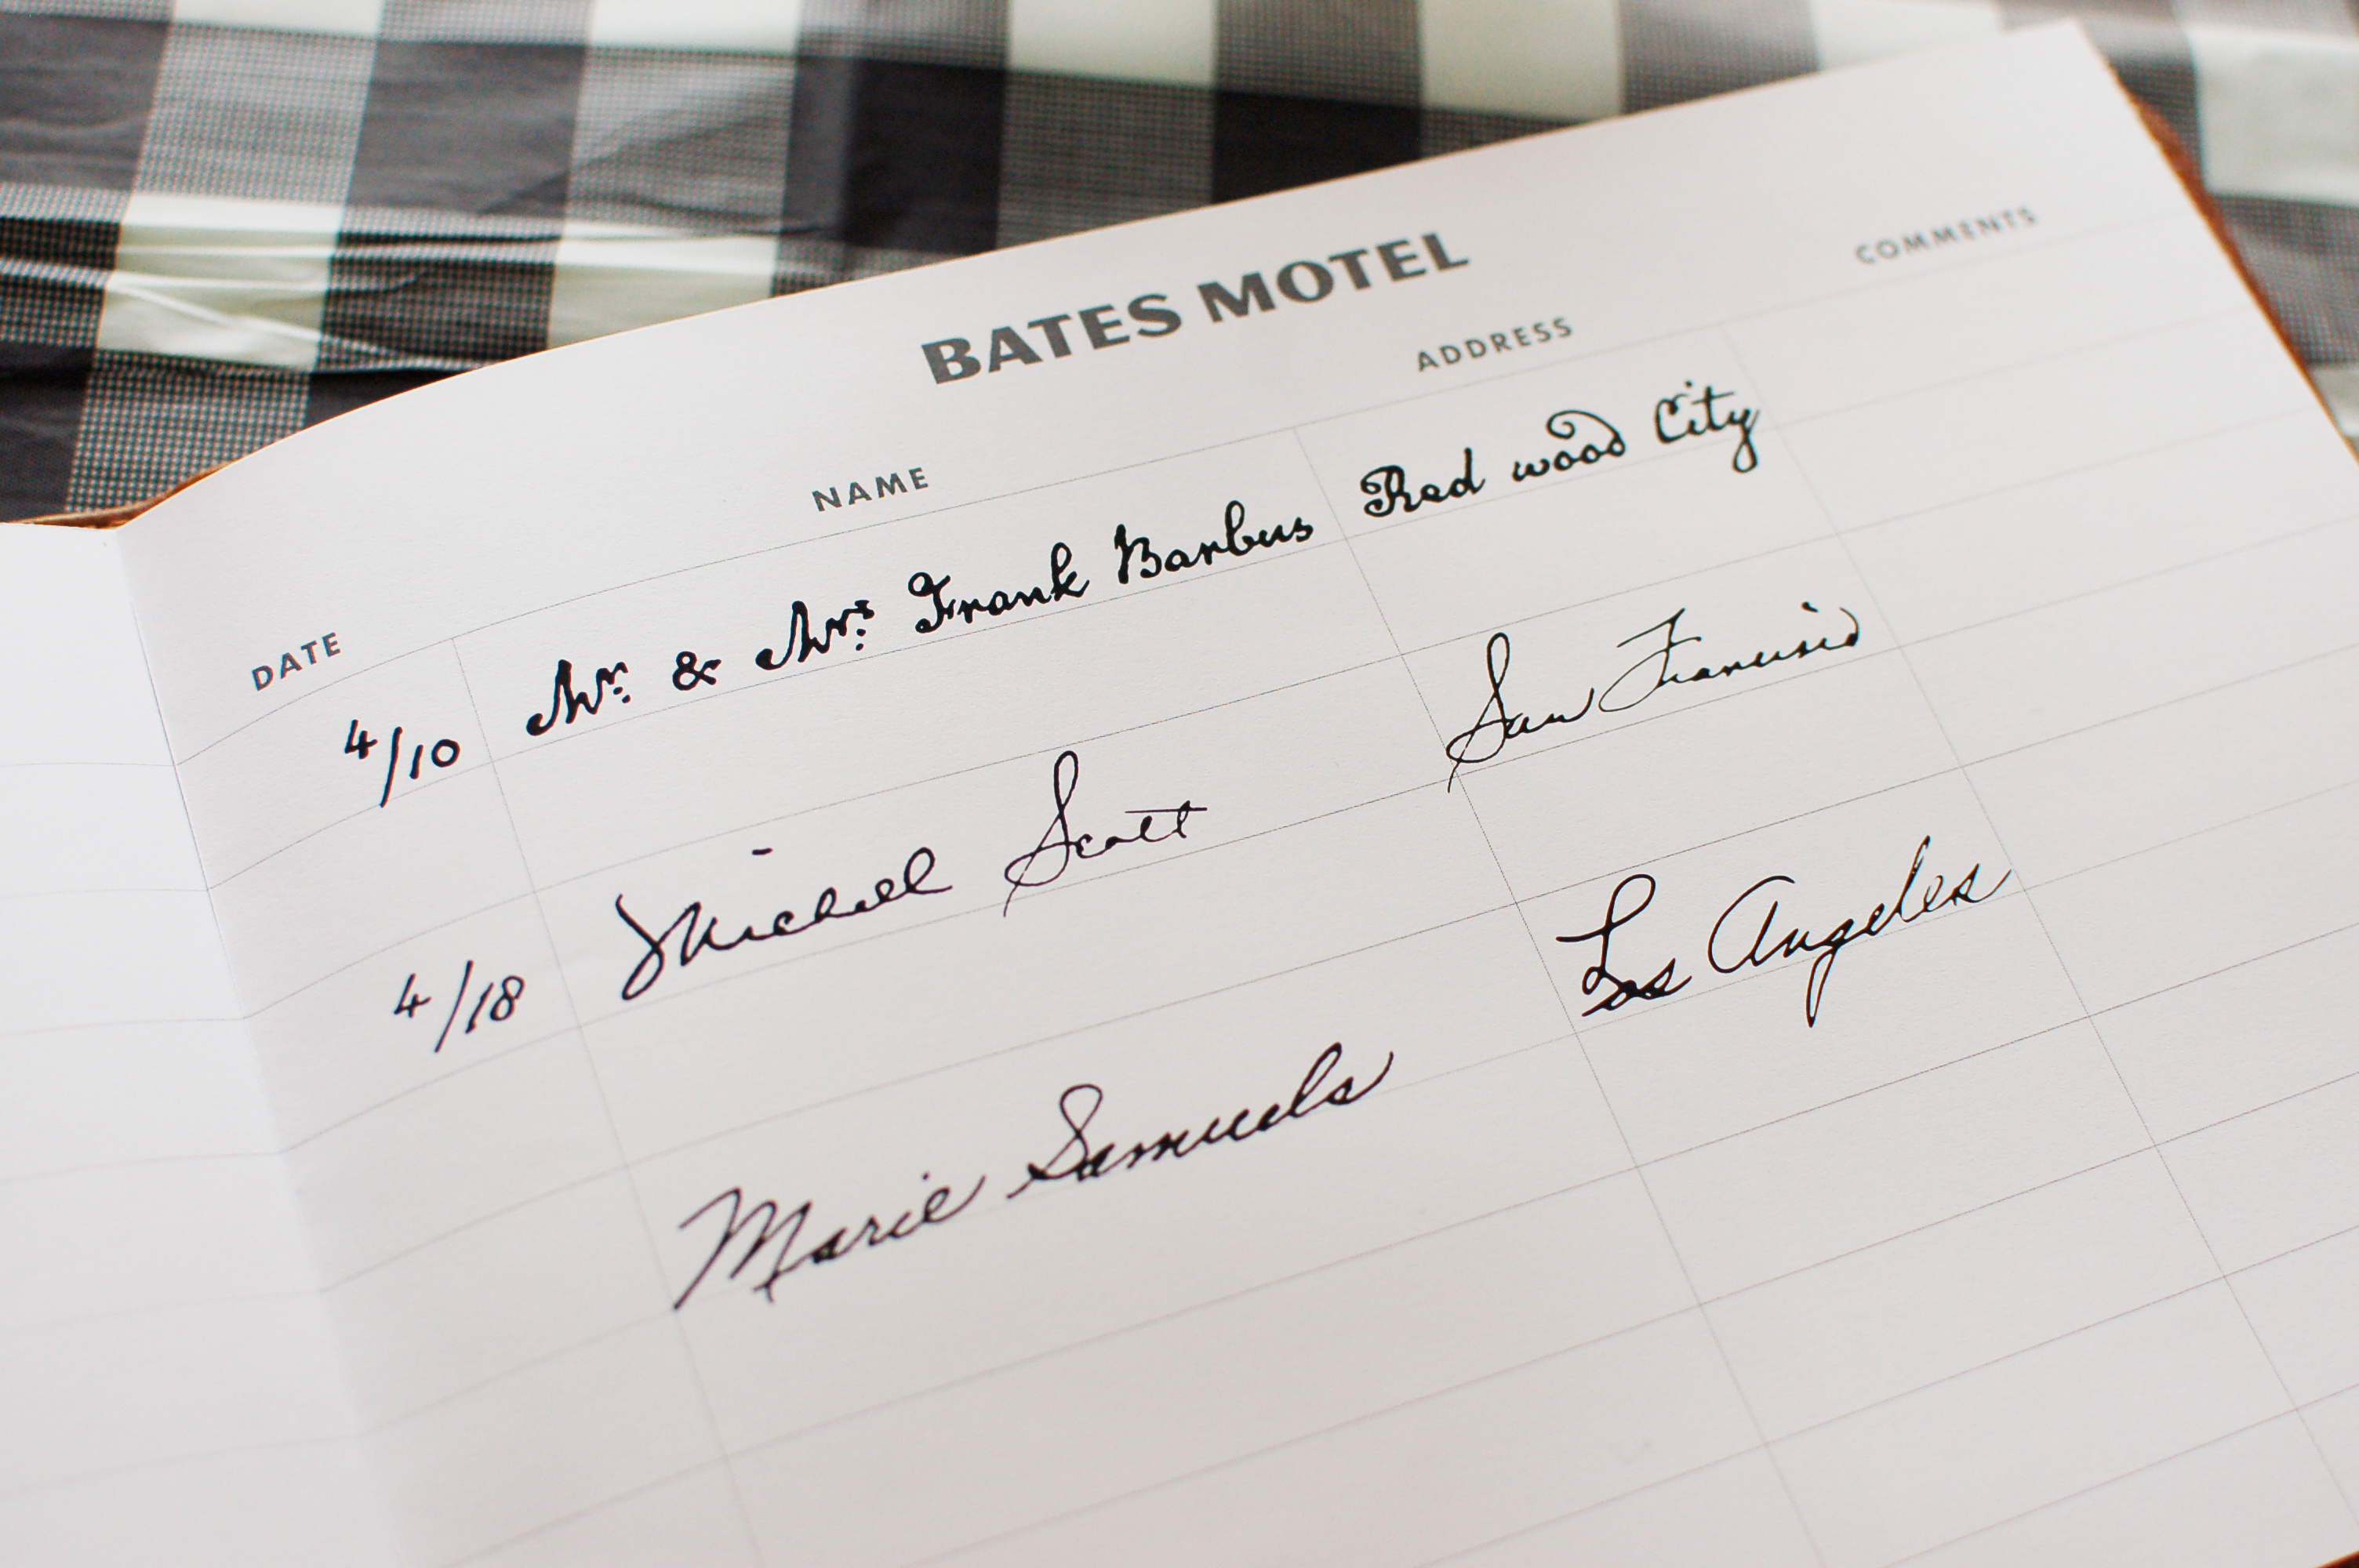 BATES MOTEL
DATE NAME ADDRESS COMMENTS
4/10 Mr. & Mrs. Frank Barbus Red wood City
4/18 Michael Scott San Francisco
Marie Samuels Los Angeles